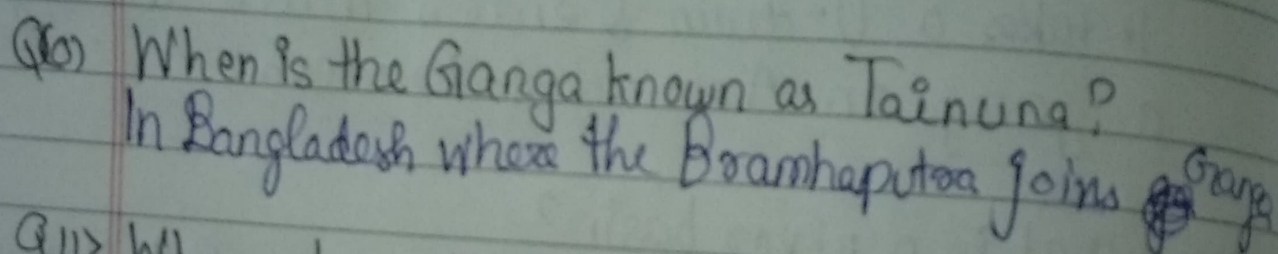 Q10) When is the Ganga known as Tainuna?
In Bangladesh where the Bramhaputra joins Ganga
Q11)